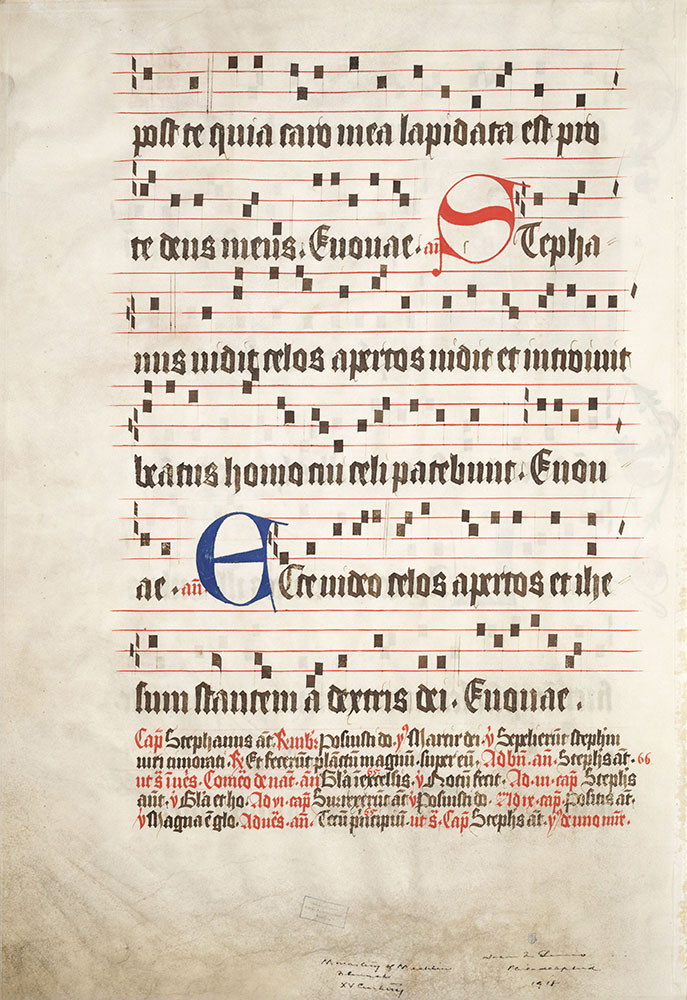 post te quia caro mea lapidata est pro
te deus meus. Euouae. añ Stepha
nus uidit celos apertos uidit et introiuit
beatus homo cui celi patebunt. Euou
ae. añ Ecce uideo celos apertos et ihe
sum stantem a dextris dei. Euouae.
Cap̃ Stephanus aũt. Rmb: Posuisti do. Martir dei. Sepelierũt stephm̃
uiri timorati. Et fecerũt plãctum magnũ. super eũ. Ad bñ. añ. Stephs aũt. 66
ut s̃ i ués. Com̃e de nat. añ Gl̃a i excelsis. Notũ fecit. Ad .iii. cap̃ Stephs
aũt. Gl̃a et ho. Ad vi. cap̃ Surrexerũt aũt Posuisti do. Ad ix. cap̃. Positis aũt.
Magna ẽ glo. Ad ués. añ. Tecũ prĩcipiũ. ut s̃. Cap̃ Stephs aũt. de uno mr̃e.
Monastery of Mechlin
XV Century
Philadelphia
1918